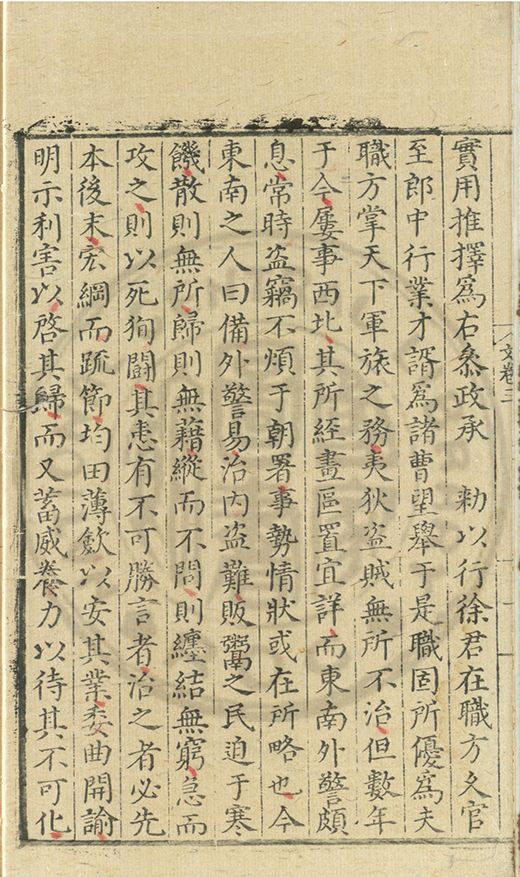 實用推擇爲右叅政承　勑以行徐君在職方久官
至郎中行業才諝爲諸曹望舉于是職固所優爲夫
職方掌天下軍旅之務夷狄盜賊無所不治但數年
于今屢事西北其所經畫區置宜詳而東南外警頗
息常時盜竊不煩于朝署事勢情狀或在所略也今
東南之人曰備外警易治内盜難販鬻之民迫于寒
饑散則無所歸則無藉縱而不問則纏結無窮急而
攻之則以死狥鬪其患有不可勝言者治之者必先
本後末宏綱而踈節均田薄歛以安其業委曲開諭
明示利害以啓其歸而又蓄威養力以待其不可化
文卷三